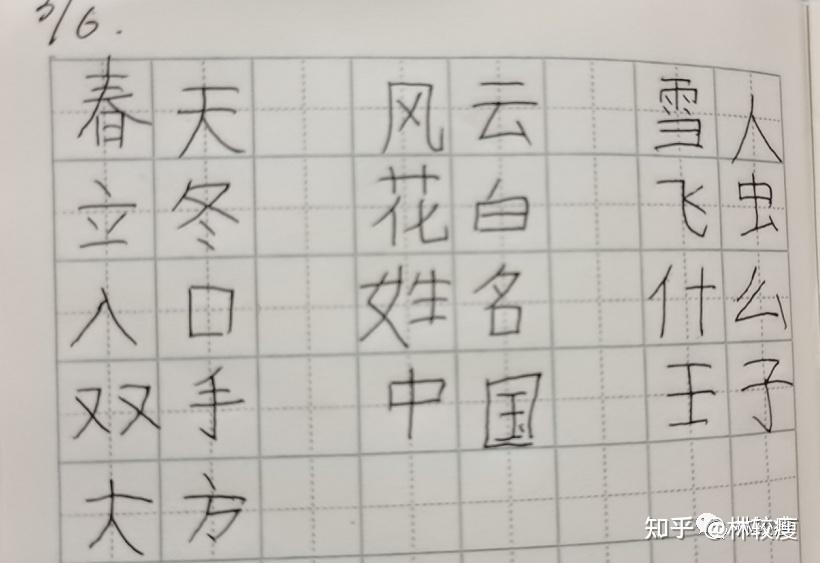 3/6.
春天 风云 雪人
立冬 花白 飞虫
入口 姓名 什么
双手 中国 王子
大方
知乎 @林较瘦